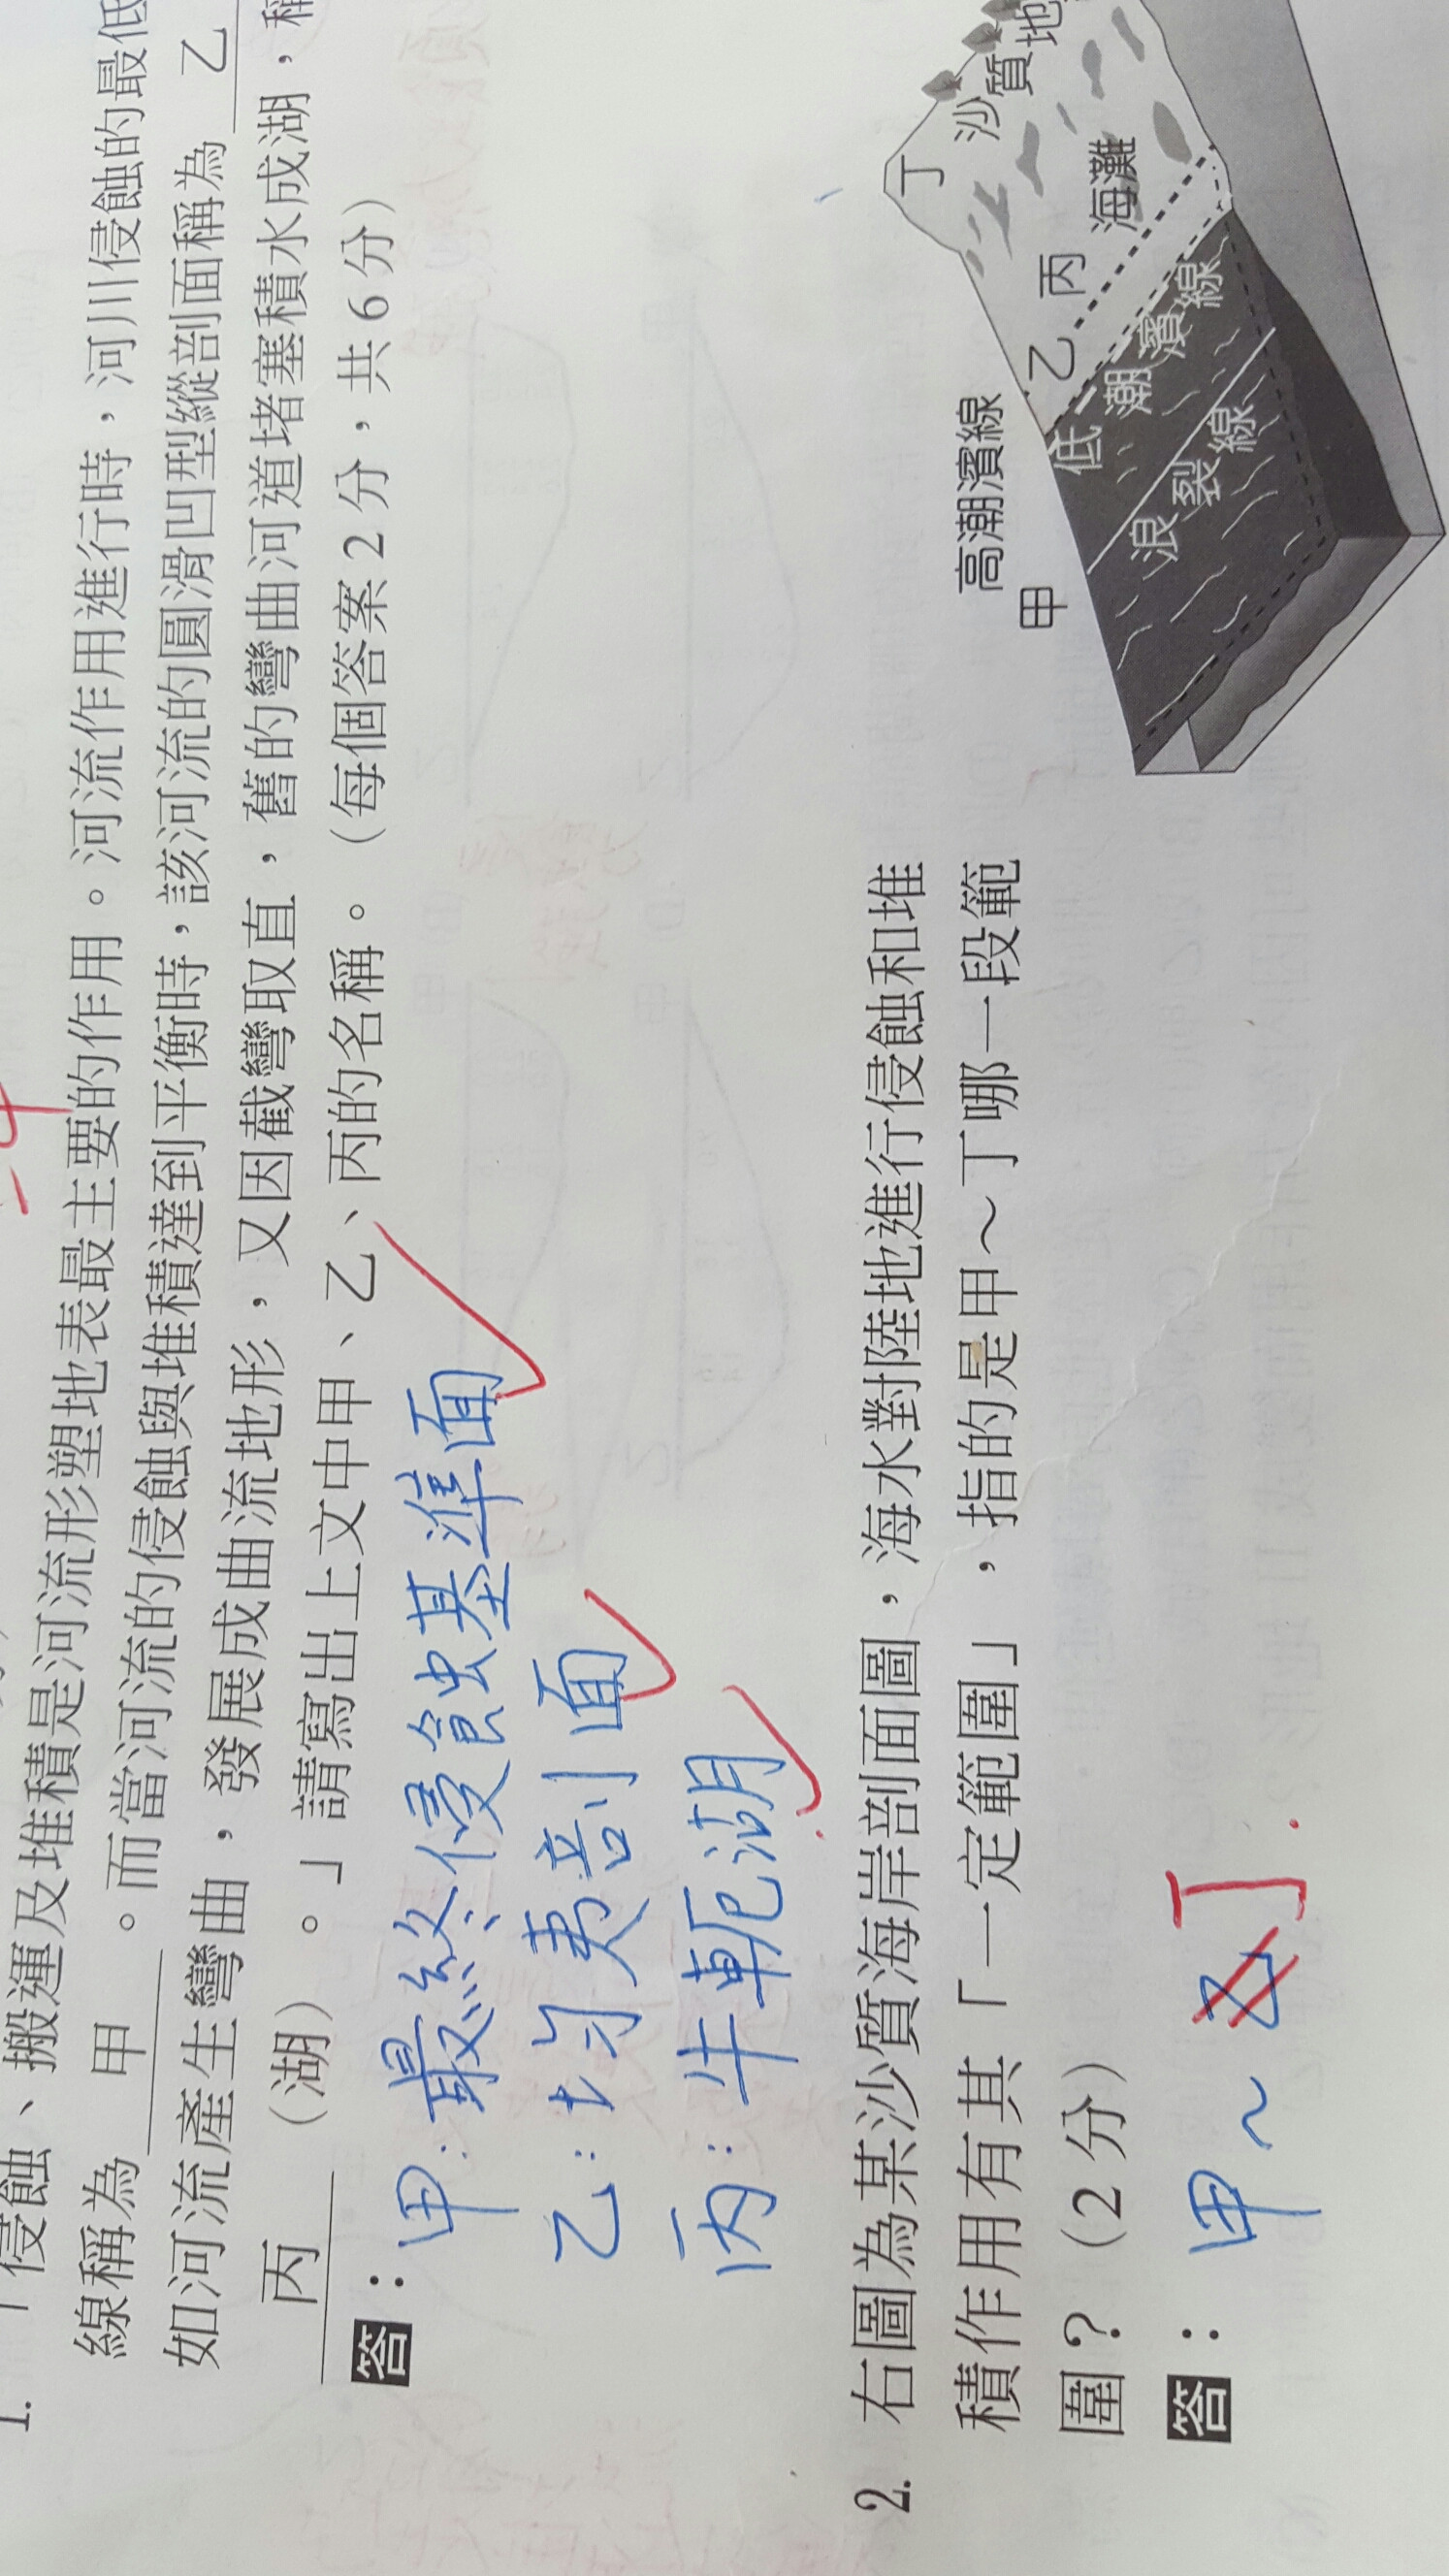 1.「侵蝕、搬運及堆積是河流形塑地表最主要的作用。河流作用進行時,河川侵蝕的最低
線稱為 甲 。而當河流的侵蝕與堆積達到平衡時,該河流的圓滑凹型縱剖面稱為 乙
如河流產生彎曲,發展成曲流地形,又因截彎取直,舊的彎曲河道堵塞積水成湖,稱
丙 (湖)。」請寫出上文中甲、乙、丙的名稱。(每個答案2分,共6分)
答:
甲:最終侵蝕基準面
乙:均夷剖面
丙:牛軛湖
2. 右圖為某沙質海岸剖面圖,海水對陸地進行侵蝕和堆
積作用有其「一定範圍」,指的是甲~丁哪一段範
圍?(2分)
答:甲~丁
高潮濱線
甲
乙
丙
丁
沙質地
海灘
低潮濱線
浪裂線